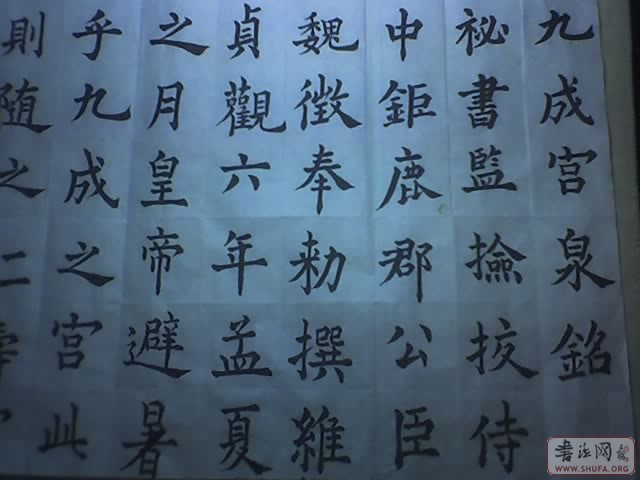 九成宮泉銘
祕書監撿挍侍
中鉅鹿郡公臣
魏徵奉勑撰維
貞觀六年孟夏
之月皇帝避暑
乎九成之宮此
則随之
書法网
WWW.SHUFA.ORG